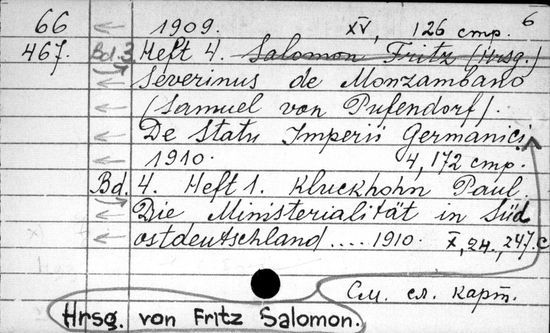 6
66 ← 1909. XV, 126 стр.
467. Bd. 3. Heft 4. Salomon Fritz (Hrsg.)
Severinus de Monzambano
← (Samuel von Pufendorf).
← De Statu Imperii Germanici
← 1910. 4, 172 стр.
Bd. 4. Heft 1. Kluckhohn Paul.
Die Ministerialität in Süd
← ostdeutschland .... 1910. X, 2н., 247. с
См. сл. карт.
Hrsg. von Fritz Salomon.